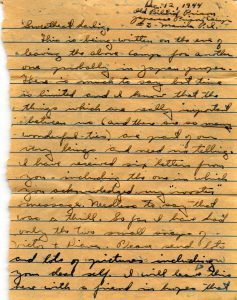 Dec. 12, 1944
Old Bilibid Prison
Japanese Prison Camp
Manila, P.I.
Sweetheart darling
This is being written on the eve of
leaving the above camp for another
one probably in Japan proper.
There is much to say but time
is limited and I know that the
things which are really important
between us (and there are so many
wonderful ties) are part of our
very beings and need no telling
I have received six letters from
you including the one in which
you acknowledged my
message. Needless to say that
was a thrill. So far I have had
only the two small snaps of
Please send lots
and lots of pictures including
your dear self. I will leave this
here with a friend in hopes that